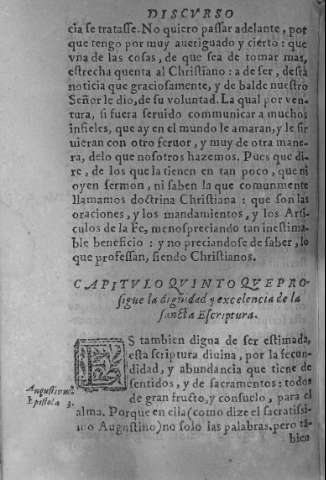 DISCVRSO
cia se tratasse. No quiero passar adelante, por
que tengo por muy aueriguado y cierto: que
vna de las cosas, de que sea de tomar mas,
estrecha quenta al Christiano: a de ser, desta
noticia que graciosamente, y de balde nuestro
Señor le dio, de su voluntad. La qual por ven-
tura, si fuera seruido communicar a muchos
infieles, que ay en el mundo le amaran, y le sir
uieran con otro feruor, y muy de otra mane-
ra, delo que nosotros hazemos. Pues que di-
re, de los que la tienen en tan poco, que ni
oyen sermon, ni saben la que comunmente
llamamos doctrina Christiana: que son las
oraciones, y los mandamientos, y los Arti-
culos de la Fe, menospreciando tan inestima-
ble beneficio: y no preciandose de saber, lo
que professan, siendo Christianos.
CAPITVLO QVINTO QVE PRO-
sigue la dignidad y excelencia de la
sancta Escriptura.
ES tambien digna de ser estimada,
esta scriptura diuina, por la fecun-
didad, y abundancia que tiene de
sentidos, y de sacramentos: todos
de gran fructo, y consuelo, para el
alma. Porque en ella (como dize el sacratissi-
mo Augustino) no solo las palabras, pero tā-
bien
Augustinus
Epistola 3.